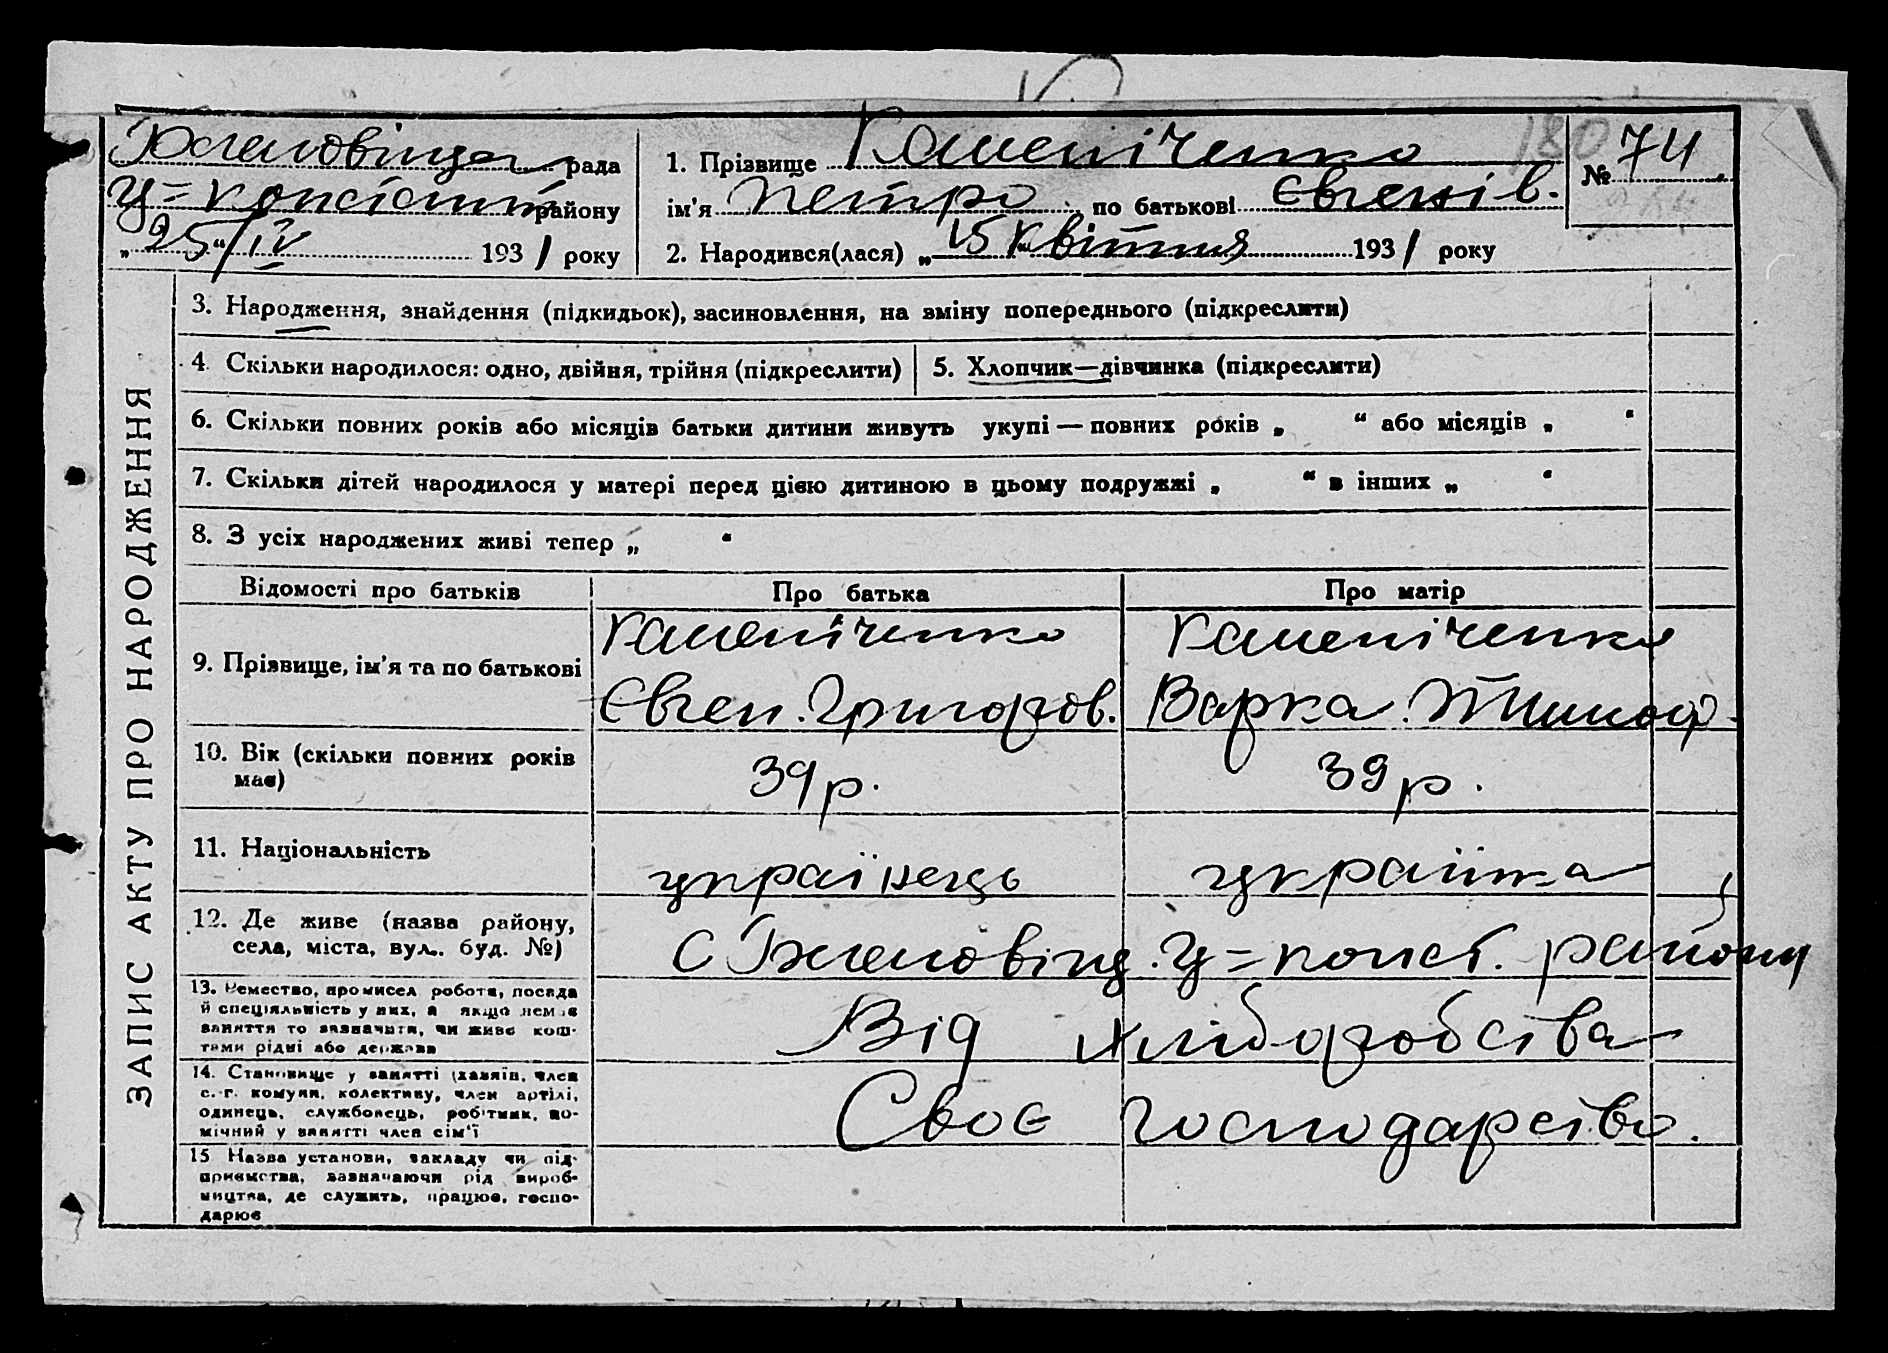 рада
1. Прізвище Каменіченко
180 № 74
району
ім'я Петро по батькові Євгенів.
„25“/IV 1931 року
2. Народився(лася) „15“ квітня 1931 року
ЗАПИС АКТУ ПРО НАРОДЖЕННЯ
3. Народження, знайдення (підкидьок), засиновлення, на зміну попереднього (підкреслити)
4. Скільки народилося: одно, двійня, трійня (підкреслити)
5. Хлопчик—дівчинка (підкреслити)
6. Скільки повних років або місяців батьки дитини живуть укупі — повних років „ “ або місяців „ “
7. Скільки дітей народилося у матері перед цією дитиною в цьому подружжі „ “ в інших „ “
8. З усіх народжених живі тепер „ “
Відомості про батьків Про батька Про матір
9. Прізвище, ім'я та по батькові
Каменіченко Каменіченко
Євген. Григоров. Варка. Тимоф.
10. Вік (скільки повних років
має)
39 р. 39 р.
11. Національність
українець українка
12. Де живе (назва району,
села, міста, вул.. буд. №)
С району
13. Ремество, промисел робота, посада
й спеціяльність у них, а якщо немає
заняття то зазначити, чи живе кош-
тами рідні або держави
Від хліборобства
14. Становище у занятті (хазяїн, член
с.-г. комуни, колективу, член артілі,
одинець, службовець, робітник, по-
мічний у занятті член сім'ї
Своє господарство.
15 Назва установи, закладу чи під-
приємства, зазначаючи рід вироб-
ництва, де служить, працює, госпо-
дарює